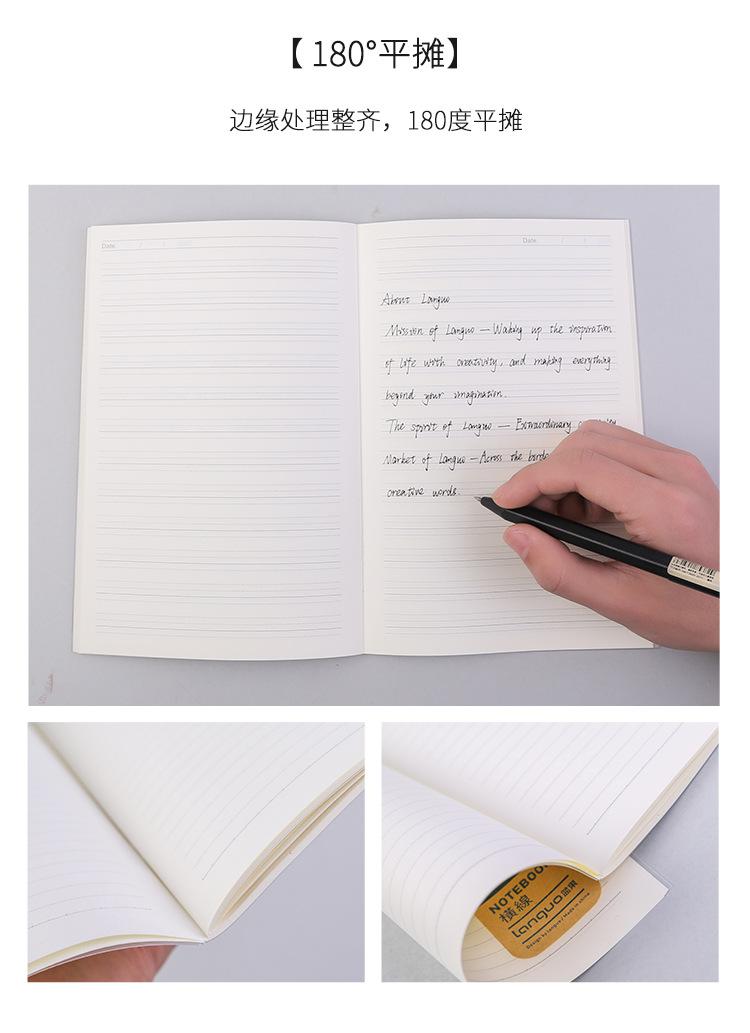 【180°平摊】
边缘处理整齐，180度平摊
Date: / /
Date: / /
About Languo
Mission of Languo — Waking up the inspiration
of life with creativity, and making everything
beyond your imagination.
The spirit of Languo — Extraordinary
Market of Languo — Across the
creative words.
NOTEBOOK
橫線
languo 蓝果
Design by Languo / Made in china